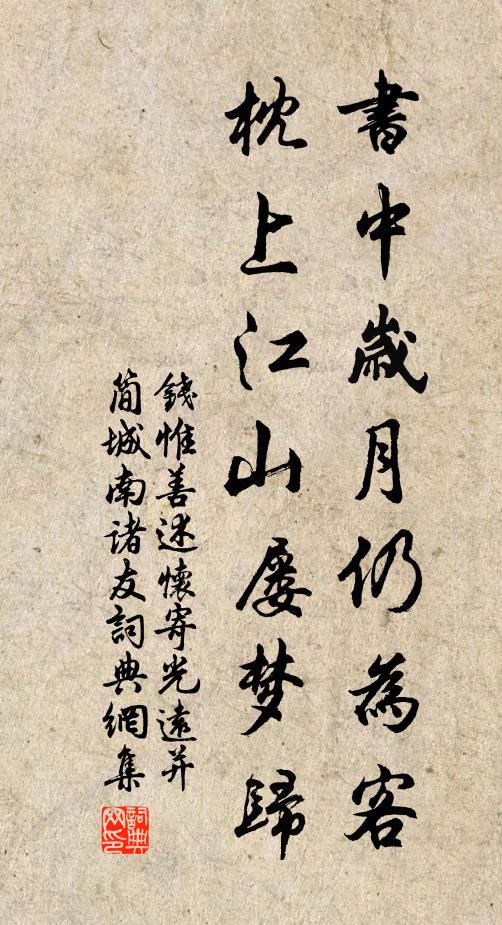 書中歲月仍為客
枕上江山屡梦歸
錢惟善述懷寄光遠并
簡城南诸友詞典網集
詞典
网印